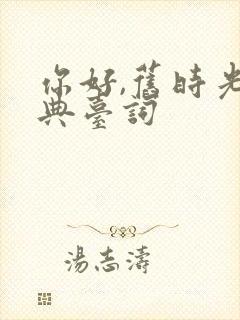 你好,舊時光
典臺詞
湯志濤